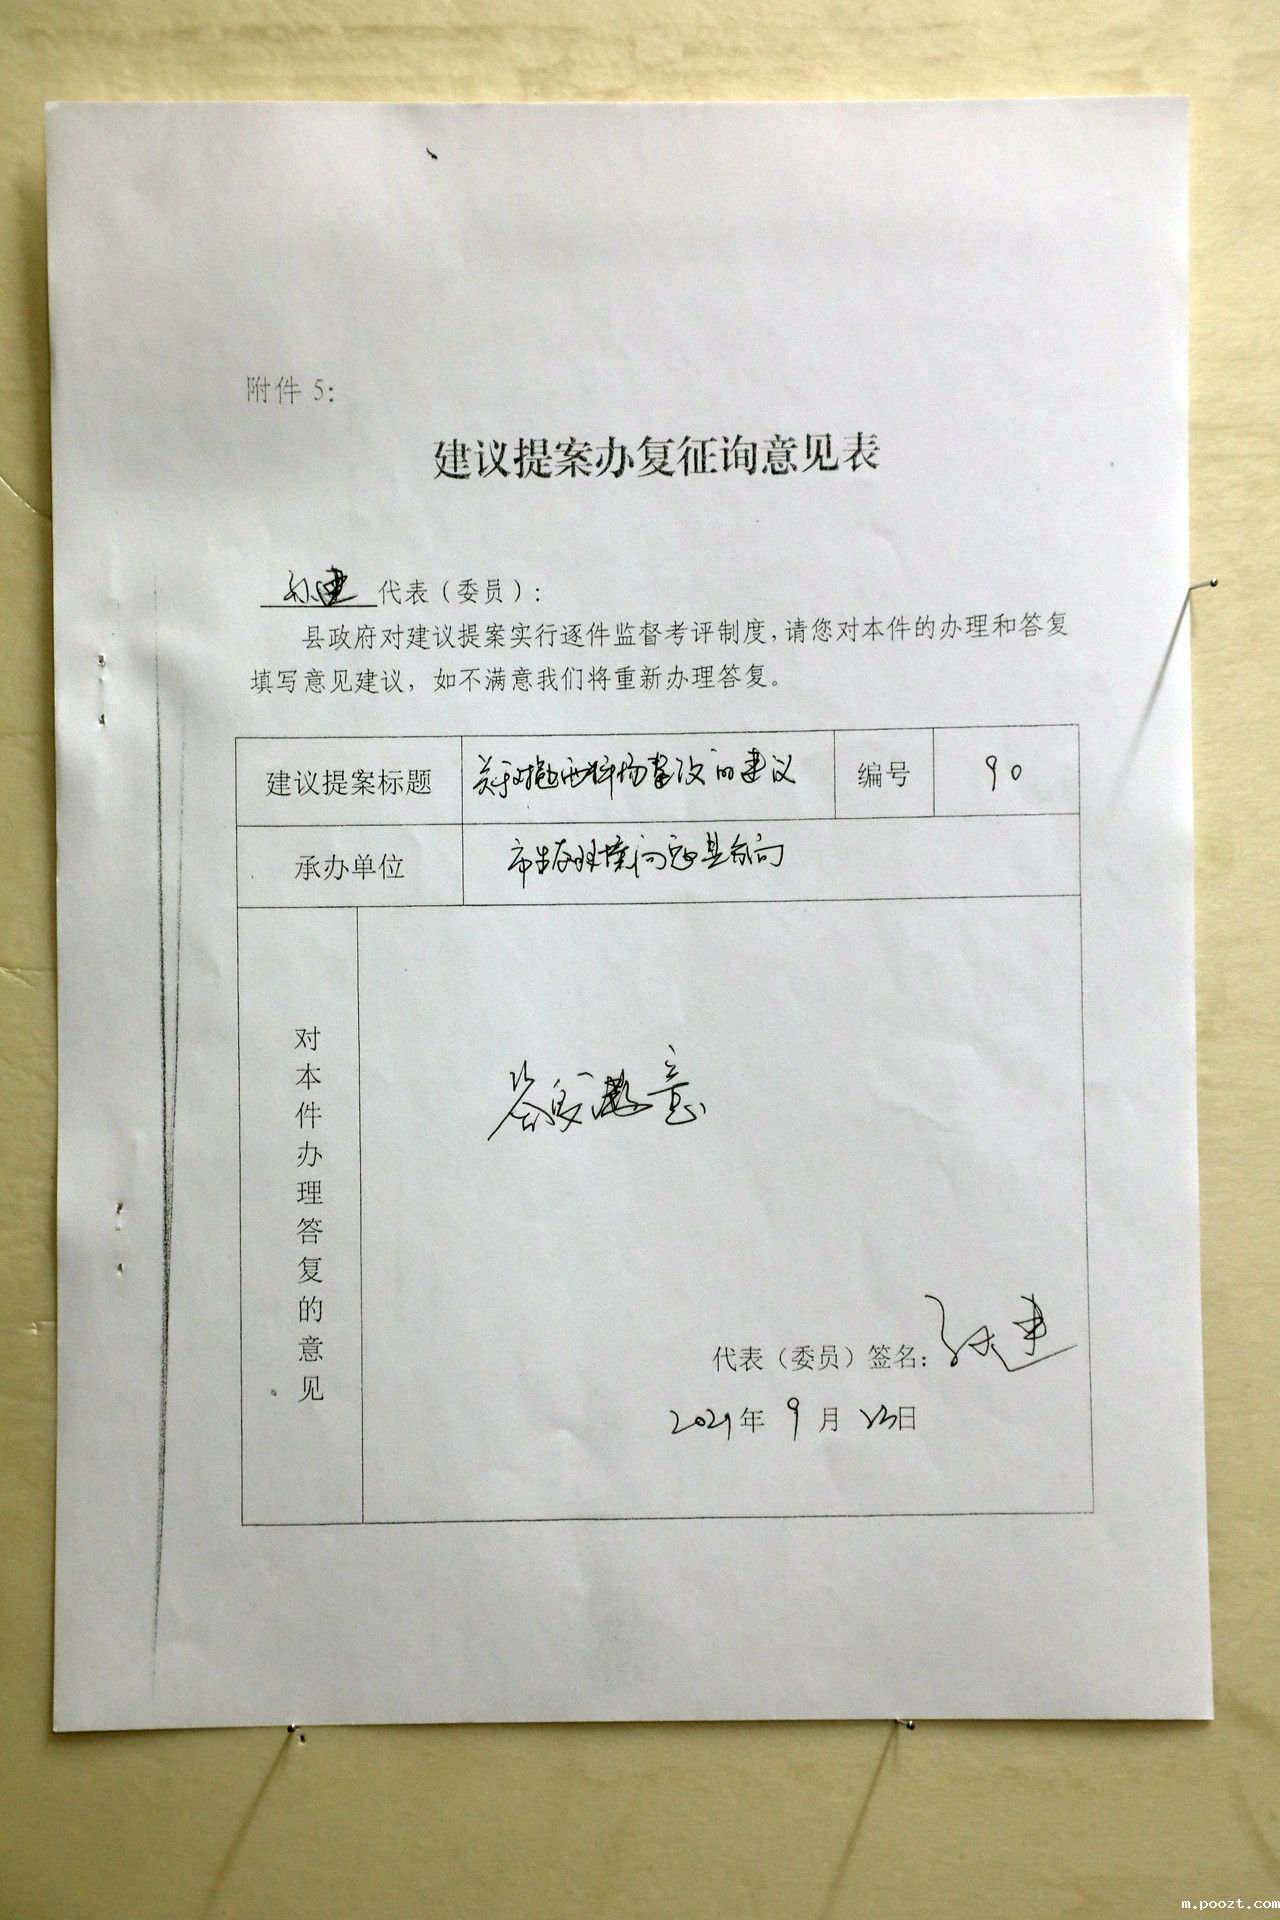 附件 5：
建议提案办复征询意见表
孙建 代表（委员）：
县政府对建议提案实行逐件监督考评制度，请您对本件的办理和答复
填写意见建议，如不满意我们将重新办理答复。
建议提案标题
关于对 整改的建议
编号
90
承办单位
市生态环境局 县分局
对本件办理答复的意见
答复满意
代表（委员）签名：孙建
2021年 9 月 日
m.poozt.com